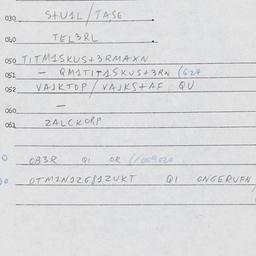 030 S+U1L/TASE
040 TEL3RL
050 TITM1SKUS+3RMAXN
051 - QM1TIT1SKUS+3RN (627
052 VAJKTOP/VAJKS+AF QU
060 —
061 ZALCKORP
OB3R QI OR (1009020
OTM1N1Z681ZUKT QI ONGERUFN/